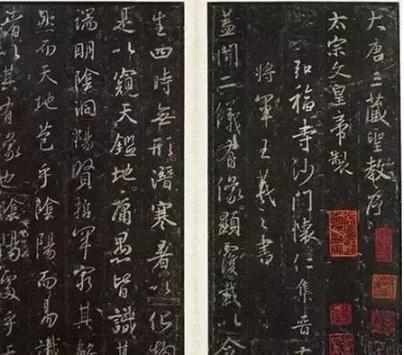 大唐三藏聖教序
太宗文皇帝製
弘福寺沙門懷仁集晉右
將軍王羲之書
蓋聞二儀有像顯覆載以含
生四時無形潛寒暑以化物
是以窺天鑑地庸愚皆識其
端明陰洞陽賢哲罕窮其數
然而天地苞乎陰陽而易識
者以其有像也陰陽處乎天